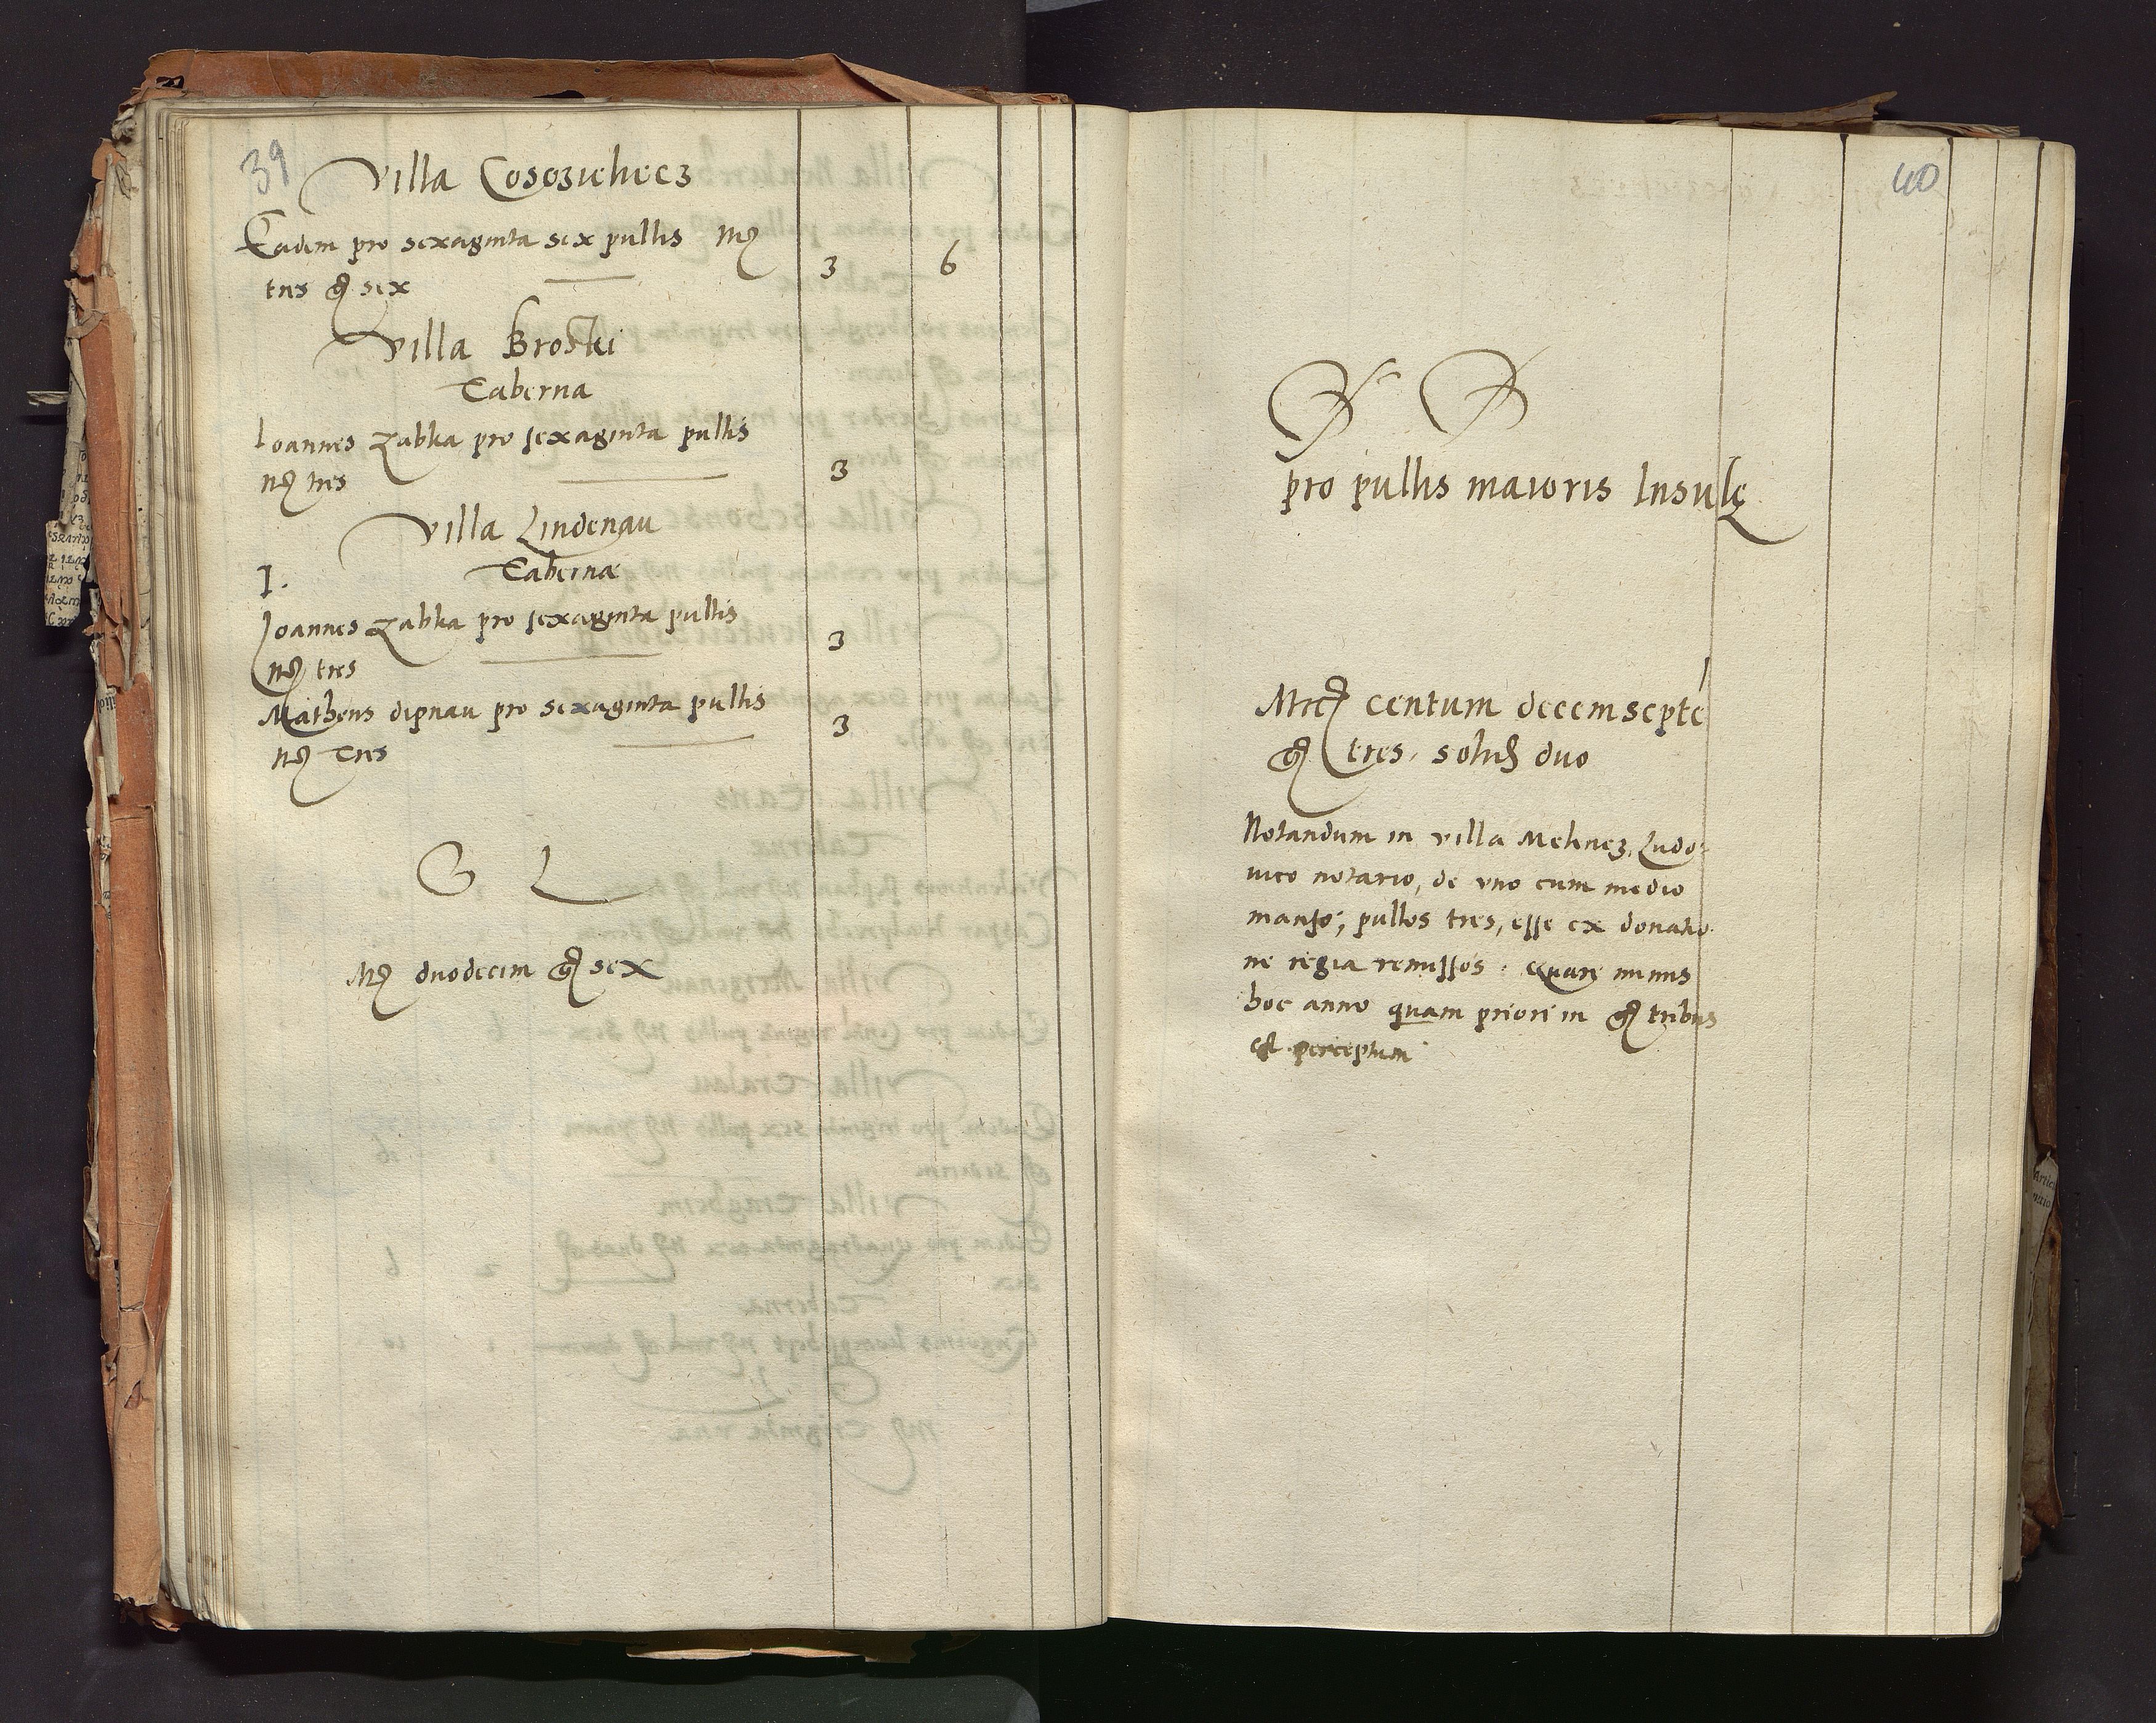 39
Villa Cosozielvecz
Eadem pro sexaginta sex pullis mɋ
tres gɋ sex 3 6
Villa Broski
Taberna
Ioannes Zabka pro sexaginta pullis
mɋ tres 3
Villa Lindenau
Taberna
I.
Joannes Zabka pro sexaginta pullis
mɋ tres 3
Matheus dipnau pro sexaginta pullis
mɋ Tres 3
G L
Mɋ duodecim gɋ sex
40
pro pullis maioris Insulę
Mrcɋ centum decemsepte
gɋ tres, solid duo
Notandum in villa Mehnez, Ludo-
uico notario, de vno cum medio
manso, pullos tres, esse ex donatio-
ne regia remissos. Quare minus
hoc anno quam priori in gɋ tribus
est perceptum